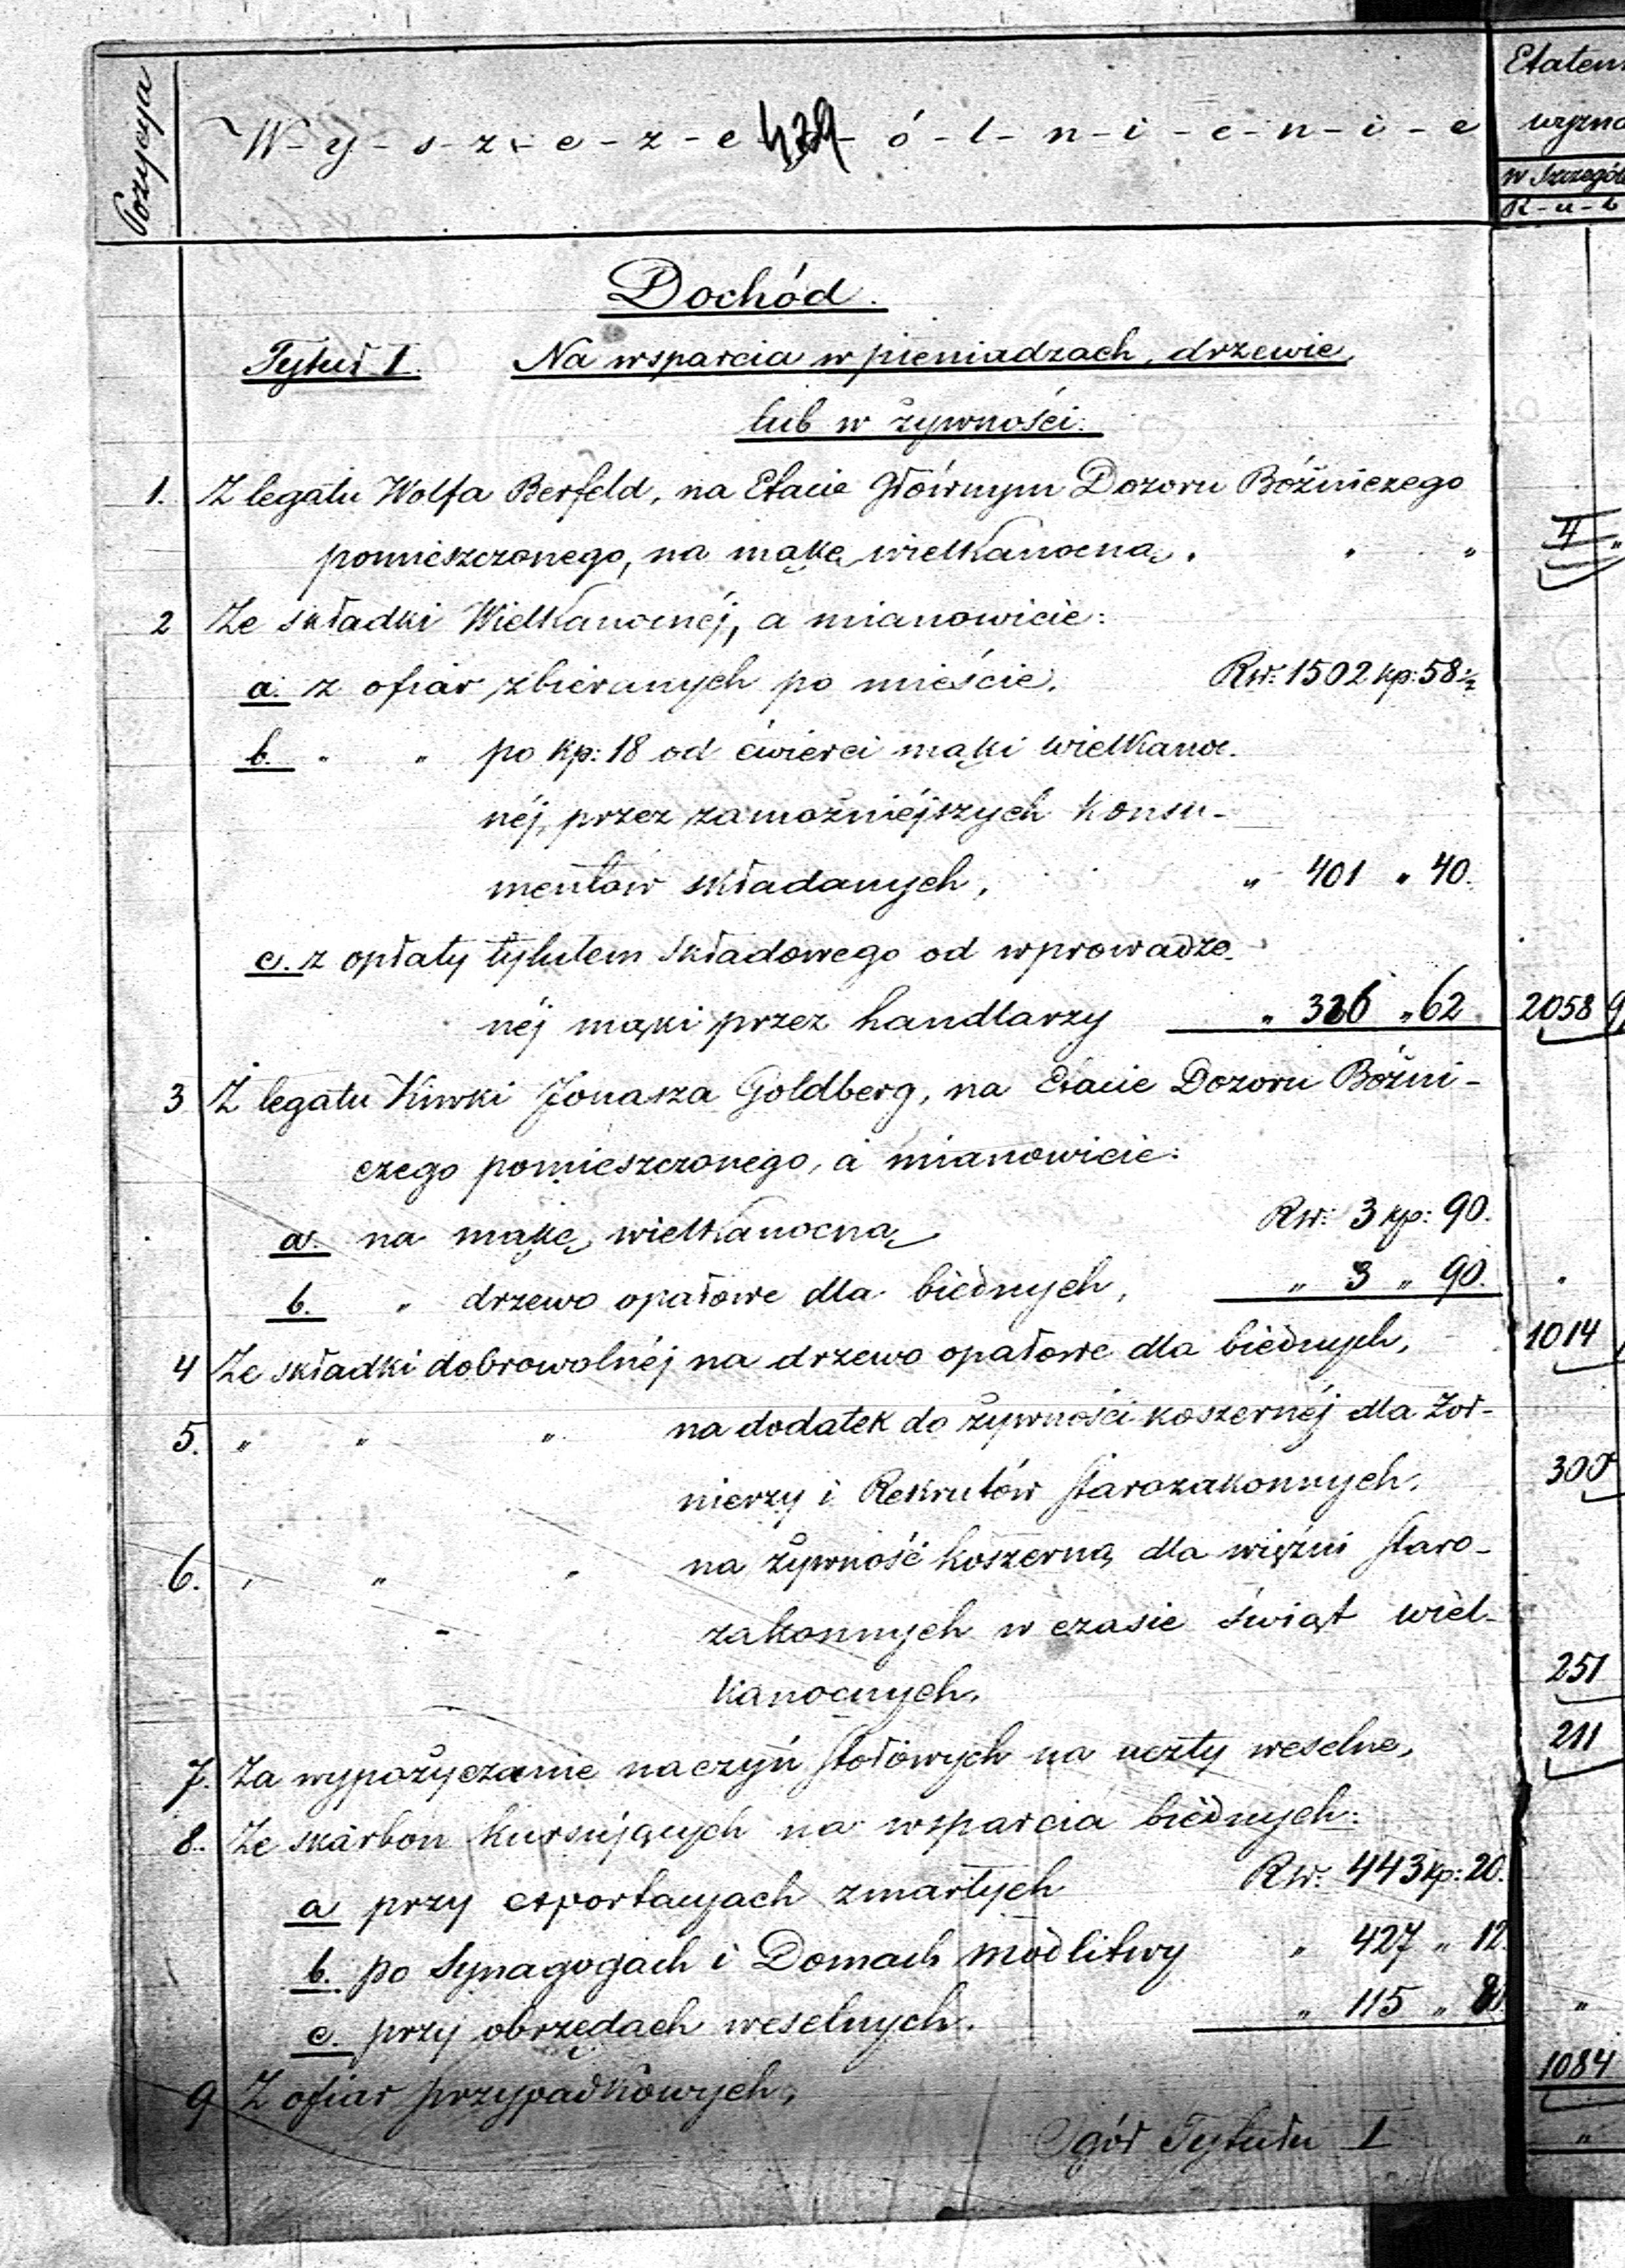 Pozycya
W-y-s-z-c-z-e-g-ó-l-n-i-e-n-i-e
439
Etatem
wyzna
w Szczegół
R-u-b
Dochód.
Tytuł I. Na wsparcia w pieniadzach, drzewie,
lub w żywności.
1. Z legatu Wolfa Berfeld, na Etacie Głównym Dozoru Bóżniczego
pomieszczonego, na mąkę wielkanocną. " " 4 "
2 Ze składki Wielkanocnéj, a mianowicie:
a. z ofiar zbieranych po mieście. Rsr: 1502 kp: 58½
b. " " po kp: 18 od ćwierci mąki wielkanoc-
néj, przez zamożniéjszych konsu-
mentów składanych, " 401 " 40.
c. z opłaty tytułem składowego od wprowadzo-
néj mąki przez handlarzy " 326 " 62 2058 9
3 Z legatu Kiwki Jonasza Goldberg, na Etacie Dozoru Bóżni-
czego pomieszczonego, a mianowicie:
a. na mąkę wielkanocną Rsr: 3 kp: 90.
b. " drzewo opałowe dla biédnych, " 3 " 90. "
4 Ze składki dobrowolnéj na drzewo opałowe dla biédnych, 1014
5. " " " na dodatek do żywności koszernéj dla Żoł-
nierzy i Rekrutów starozakonnych. 300
6. " " " na żywność koszerną dla więźni staro-
zakonnych w czasie świąt wiel-
kanocnych. 251
7. Za wypożyczanie naczyń stołowych na uczty weselne, 211
8. Ze skarbon kursujących na wsparcia biédnych:
a przy exportacyach zmarłych Rsr: 443 kp: 20.
b. po Synagogach i Domach modlitwy " 427 " 12.
c. przy obrzędach weselnych. " 115 " "
9 Z ofiar przypadkowych, 1084
Ogół Tytułu I "